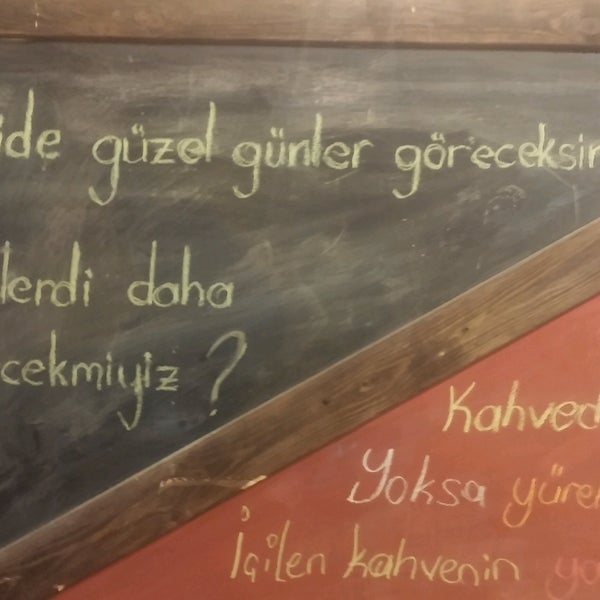 ide güzel günler göreceksin
lerdi daha
cekmiyiz ?
Kahved
Yoksa yüre
İçilen kahvenin ya